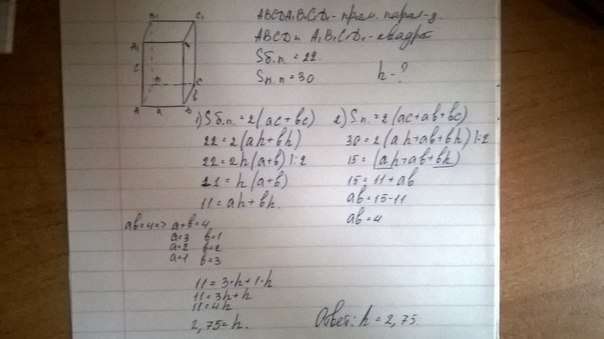 B₁ C₁
ABCDA₁B₁C₁D₁ - прям. парал-д.
ABCD и A₁B₁C₁D₁ - квадрат
Sб.п. = 22
Sп.п. = 30 h - ?
A a D
1) Sб.п. = 2(ac+bc)
22 = 2(ah+bh)
22 = 2h(a+b) |:2
11 = h(a+b)
11 = ah+bh.
2) Sп. = 2(ac+ab+bc)
30 = 2(ah+ab+bh) |:2
15 = (ah+ab+bh)
15 = 11+ab
ab = 15-11
ab = 4
ab=4 => a+b=4
a=3 b=1
a=2 b=2
a=1 b=3
11 = 3·h+1·h
11 = 3h+h
11 = 4h
2,75 = h.
Ответ: h = 2,75.